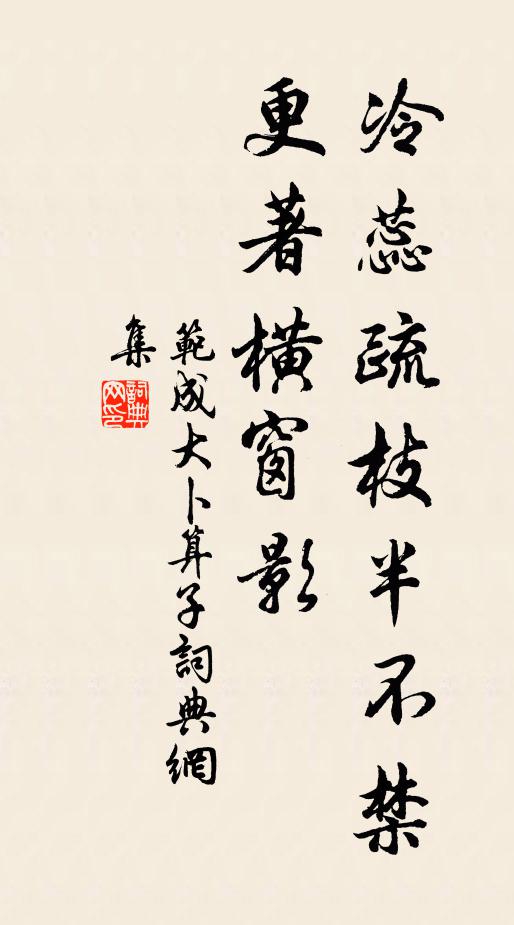 冷蕊疏枝半不禁
更著橫窗影
範成大卜算子詞典網
集
詞典網印